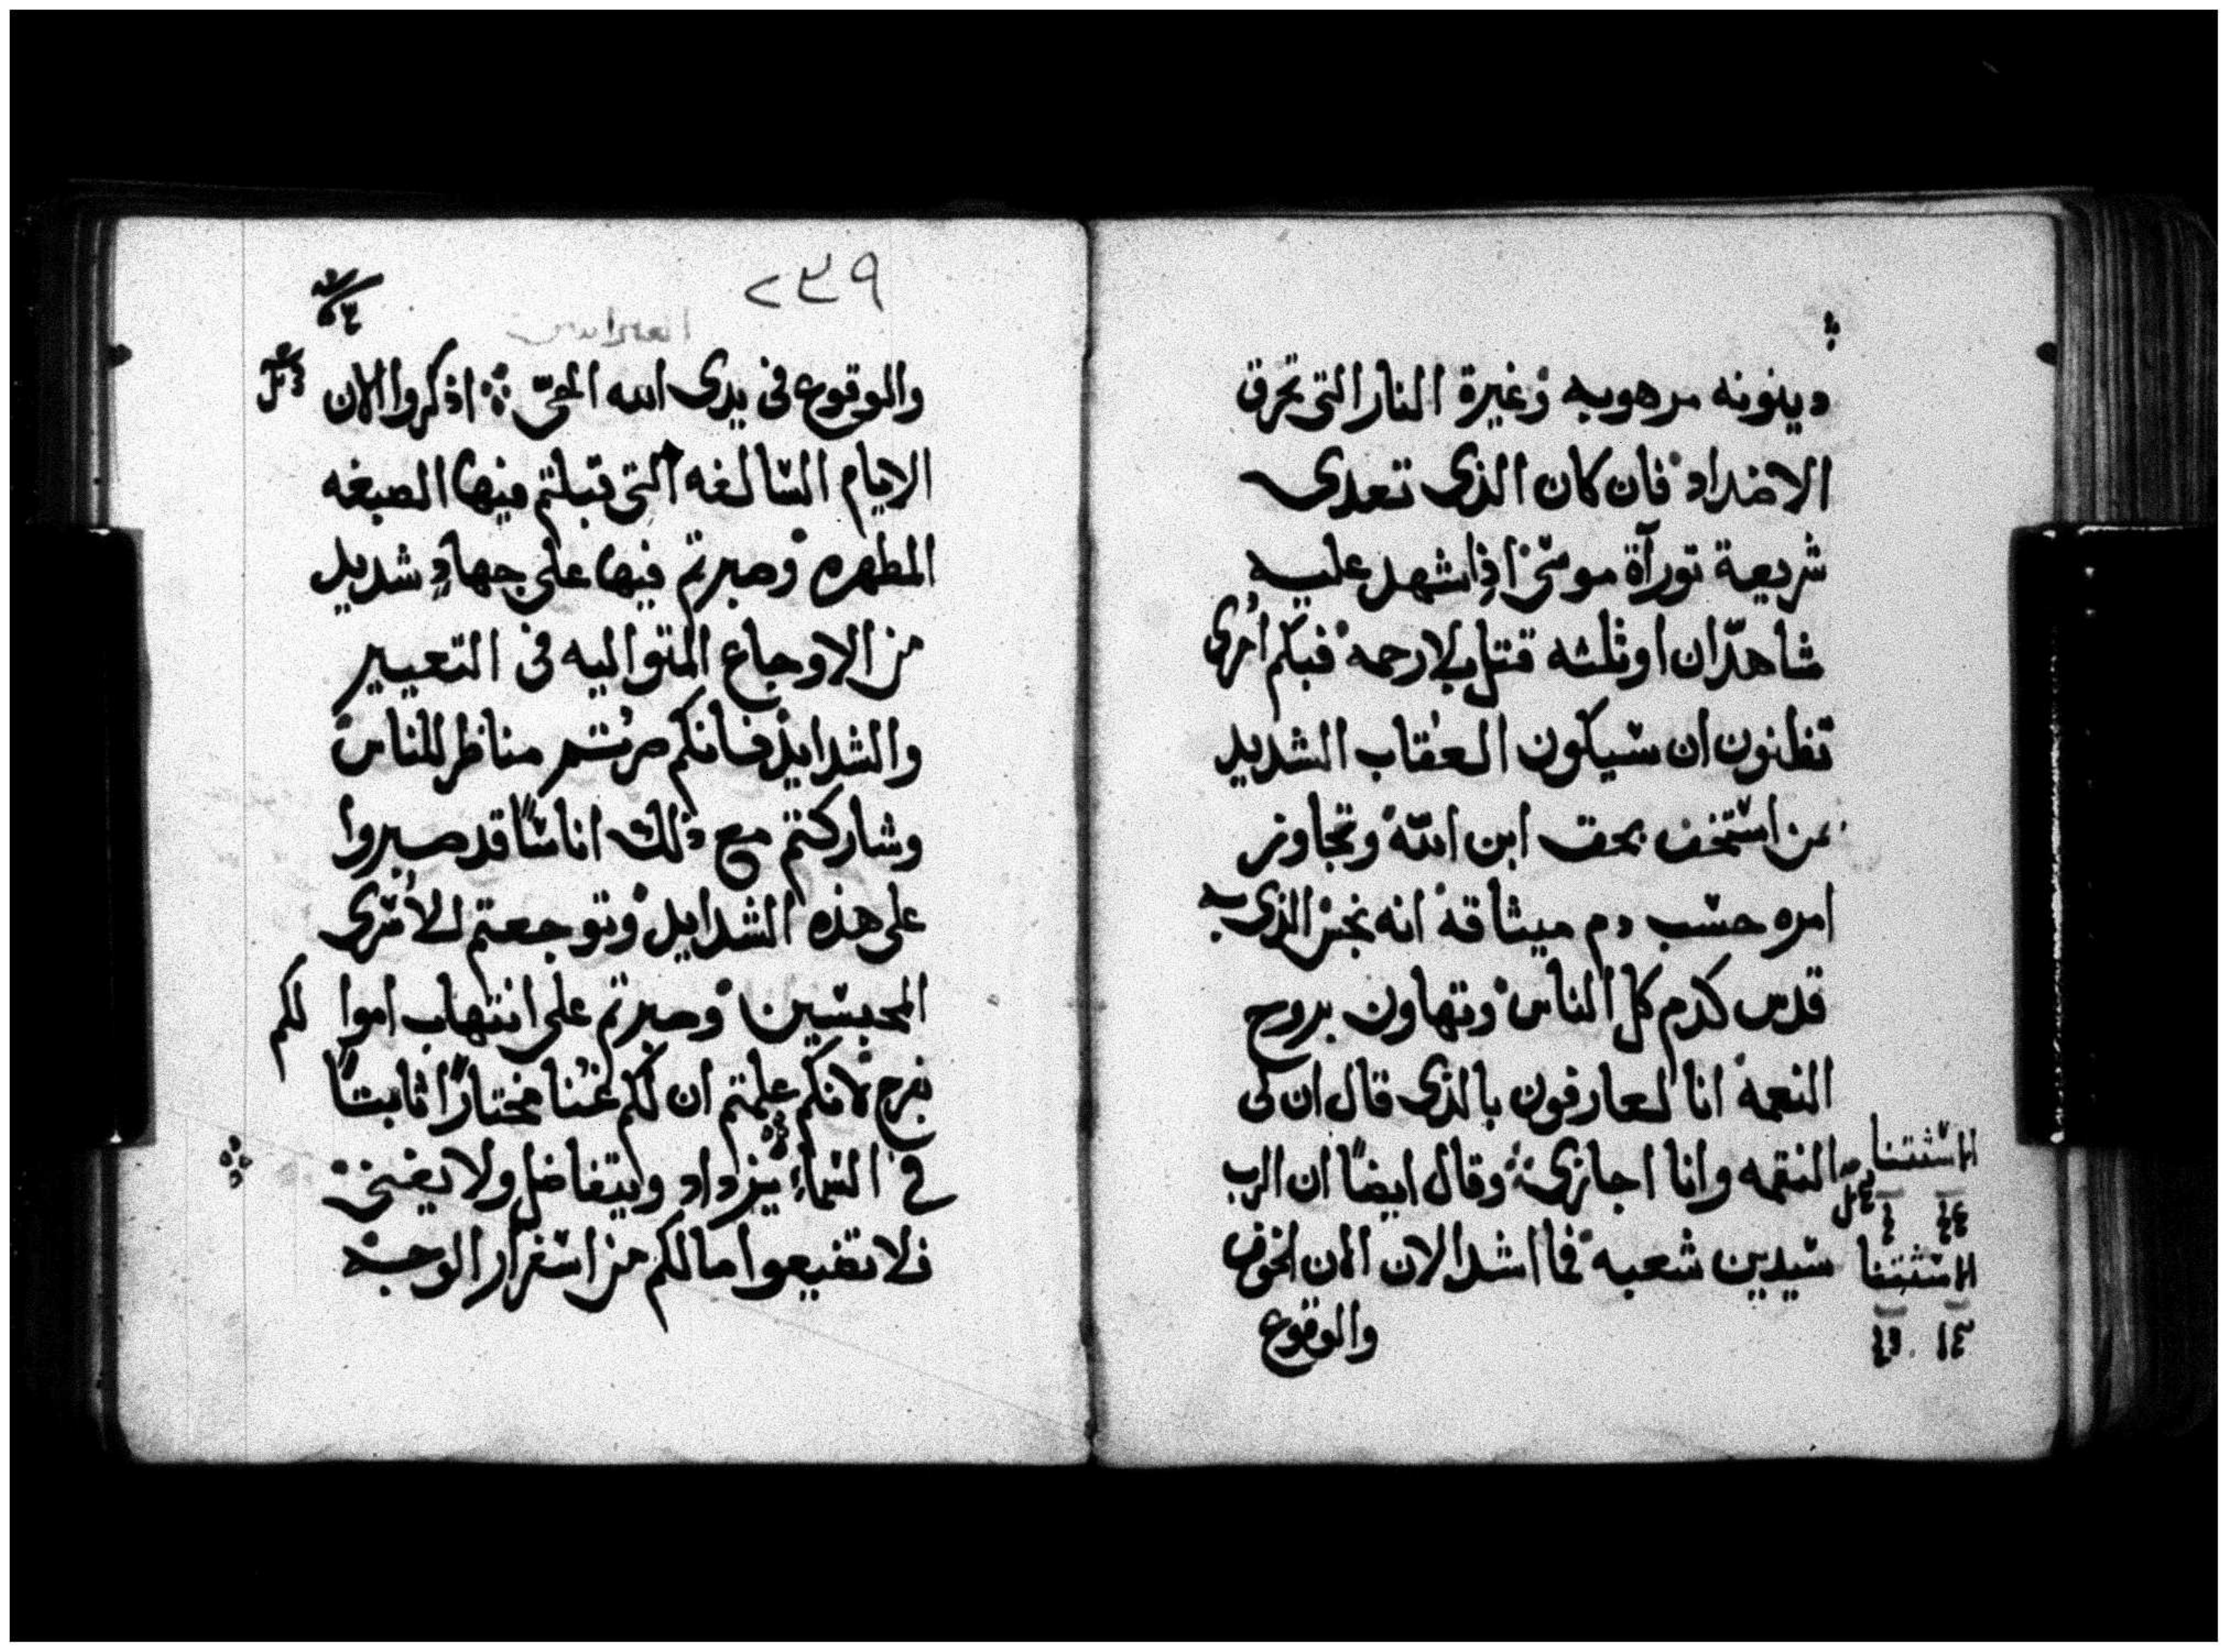 دينونه مرهوبه وغيرة النار التى تحرق
الاضداد فان كان الذى تعدى
شريعة تورآة موسى اذا شهد عليه
شاهدان او ثلثه قتل بلا رحمه فبكم احرى
تظنون ان سيكون العقاب الشديد
من استخف بحق ابن الله وتجاوز
امره حسب دم ميثاقه انه نجس الذى به
قدس كدم كل الناس وتهاون بروح
النعمه انا لعارفون بالذى قال ان لى
النقمه وانا اجازى وقال ايضًا ان الرب
سيدين شعبه فما اشد الان الخوف
والوقوع
٢٣٩
العبرانيين
والوقوع فى يدى الله الحىّ اذكروا الان
الايام السالفه التى قبلتم فيها الصبغه
المطهره وصبرتم فيها على جهادٍ شديد
من الاوجاع المتواليه فى التعيير
والشدايد فانكم صرتم مناظر للناس
وشاركتم مع ذلك اناسًا قد صبروا
على هذه الشدايد وتوجعتم للاسرى
المحبسين وصبرتم على انتهاب اموالكم
بفرح لانكم علمتم ان لكم غنا مختارًا ثابتًا
فى السماء يزداد ويتفاضل ولا يفنى
فلا تضيعوا ما لكم من اسفرار الوجه